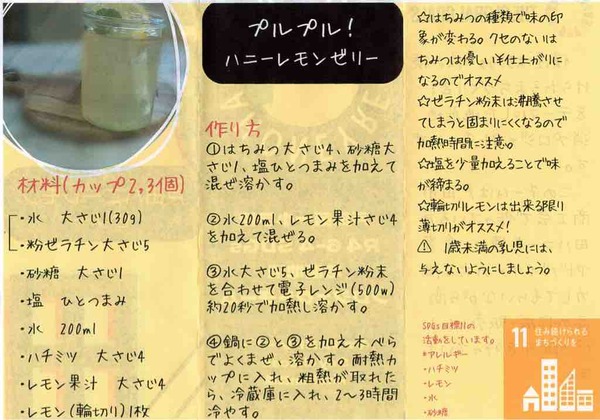 プルプル！
ハニーレモンゼリー
材料(カップ2,3個)
・水 大さじ1(30g)
・粉ゼラチン大さじ5
・砂糖 大さじ1
・塩 ひとつまみ
・水 200ml
・ハチミツ 大さじ4
・レモン果汁 大さじ4
・レモン(輪切り)1枚
作り方
①はちみつ大さじ4、砂糖大
さじ1、塩ひとつまみを加えて
混ぜ溶かす。
②水200ml、レモン果汁さじ4
を加えて混ぜる。
③水大さじ5、ゼラチン粉末
を合わせて電子レンジ(500w)
約20秒で加熱し溶かす。
④鍋に②と③を加え木べら
でよくまぜ、溶かす。耐熱カ
ップに入れ、粗熱が取れた
ら、冷蔵庫に入れ、2〜3時間
冷やす。
☆はちみつの種類で味の印
象が変わる。クセのないは
ちみつは優しい仕上がりに
なるのでオススメ
☆ゼラチン粉末は沸騰させ
てしまうと固まりにくくなるので
加熱時間に注意。
☆塩を少量加えることで味
が締まる。
☆輪切りレモンは出来る限り
薄切りがオススメ！
⚠ 1歳未満の乳児には、
与えないようにしましょう。
SDGs目標11の
活動をしています。
*アレルギー
・ハチミツ
・レモン
・水
・砂糖
11 住み続けられる
まちづくりを